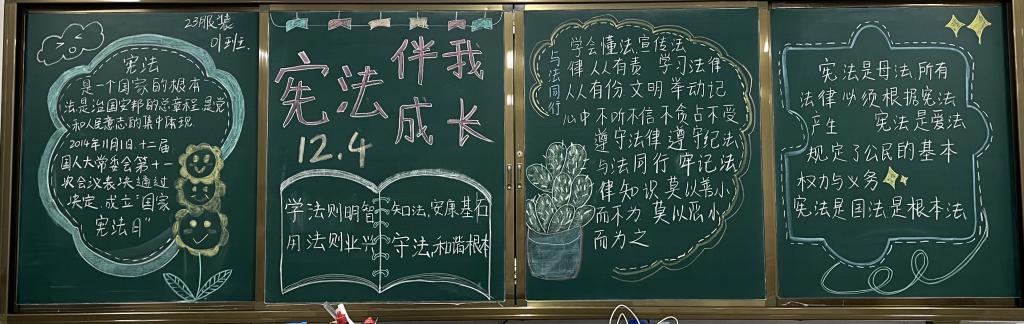 23服装
01班.
宪法
是一个国家的根本
法是治国安邦的总章程是党
和人民意志的集中体现
2014年11月1日十二届
国人大常委会第十一
次会议表决通过
决定,成立"国家
宪法日"
宪法
伴我
成长
12.4
学法则明智
用法则业兴
知法,安康基石
守法,和谐根本
与法同行
学会懂法宣传法
律人人有责 学习法律
人人有份文明举动记
心中不听不信不贪占不受
遵守法律遵守纪法
与法同行牢记法
律知识莫以善小
而不为莫以恶小
而为之
宪法是母法所有
法律必须根据宪法
产生 宪法是爱法
规定了公民的基本
权力与义务
宪法是国法是根本法